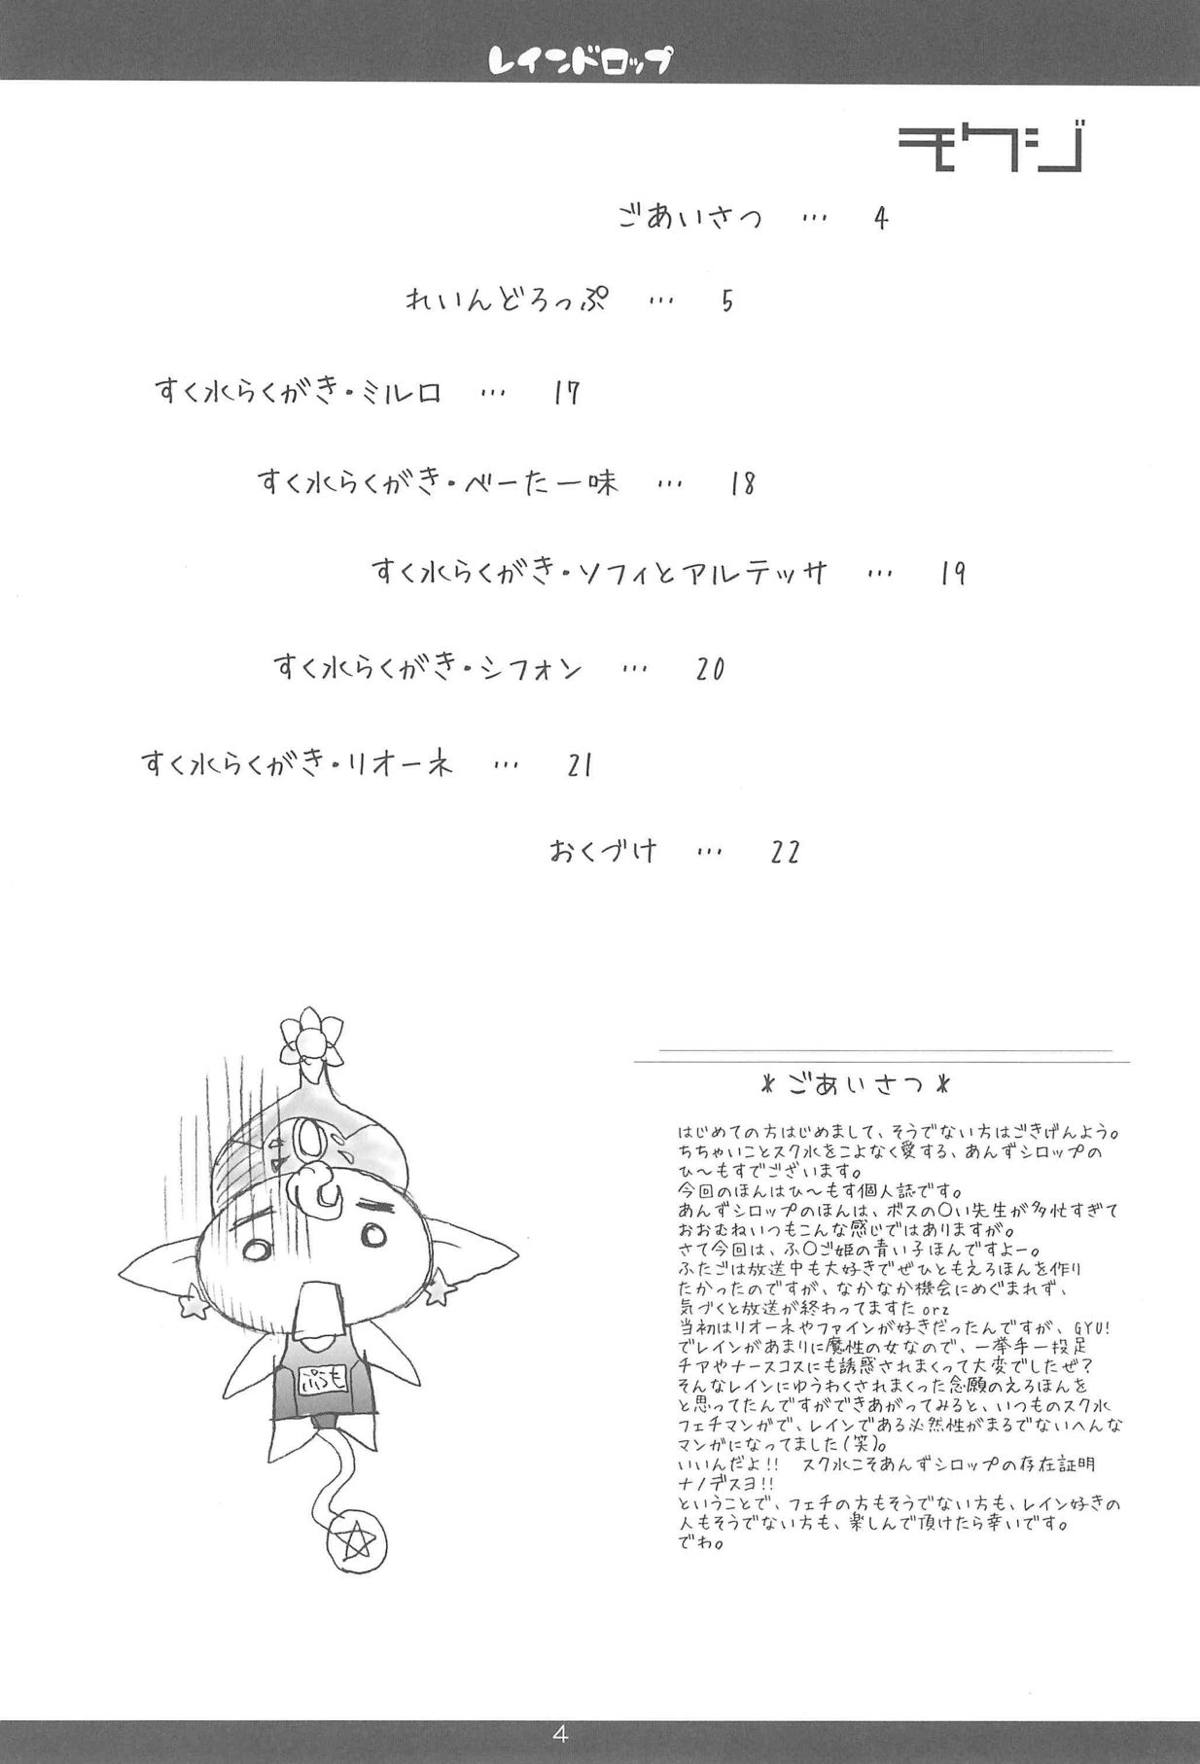 レインドロップ
モクジ
ごあいさつ … 4
れいんどろっぷ … 5
すく水らくがき・ミルロ … 17
すく水らくがき・べーた一味 … 18
すく水らくがき・ソフィとアルテッサ … 19
すく水らくがき・シフォン … 20
すく水らくがき・リオーネ … 21
おくづけ … 22
ぷぅも
*ごあいさつ*
はじめての方はじめまして、そうでない方はごきげんよう。
ちちゃいことスク水をこよなく愛する、あんずシロップの
ひ〜もすでございます。
今回のほんはひ〜もす個人誌です。
あんずシロップのほんは、ボスの〇い先生が多忙すぎて
おおむねいつもこんな感じではありますが。
さて今回は、ふ〇ご姫の青い子ほんですよー。
ふたごは放送中も大好きでぜひともえろほんを作り
たかったのですが、なかなか機会にめぐまれず、
気づくと放送が終わってますた orz
当初はリオーネやファインが好きだったんですが、GYU!
でレインがあまりに魔性の女なので、一挙手一投足
チアやナースコスにも誘惑されまくって大変でしたぜ?
そんなレインにゆうわくされまくった念願のえろほんを
と思ってたんですができあがってみると、いつものスク水
フェチマンガで、レインである必然性がまるでないへんな
マンガになってました(笑)。
いいんだよ!! スク水こそあんずシロップの存在証明
ナノデスヨ!!
ということで、フェチの方もそうでない方も、レイン好きの
人もそうでない方も、楽しんで頂けたら幸いです。
でわ。
4